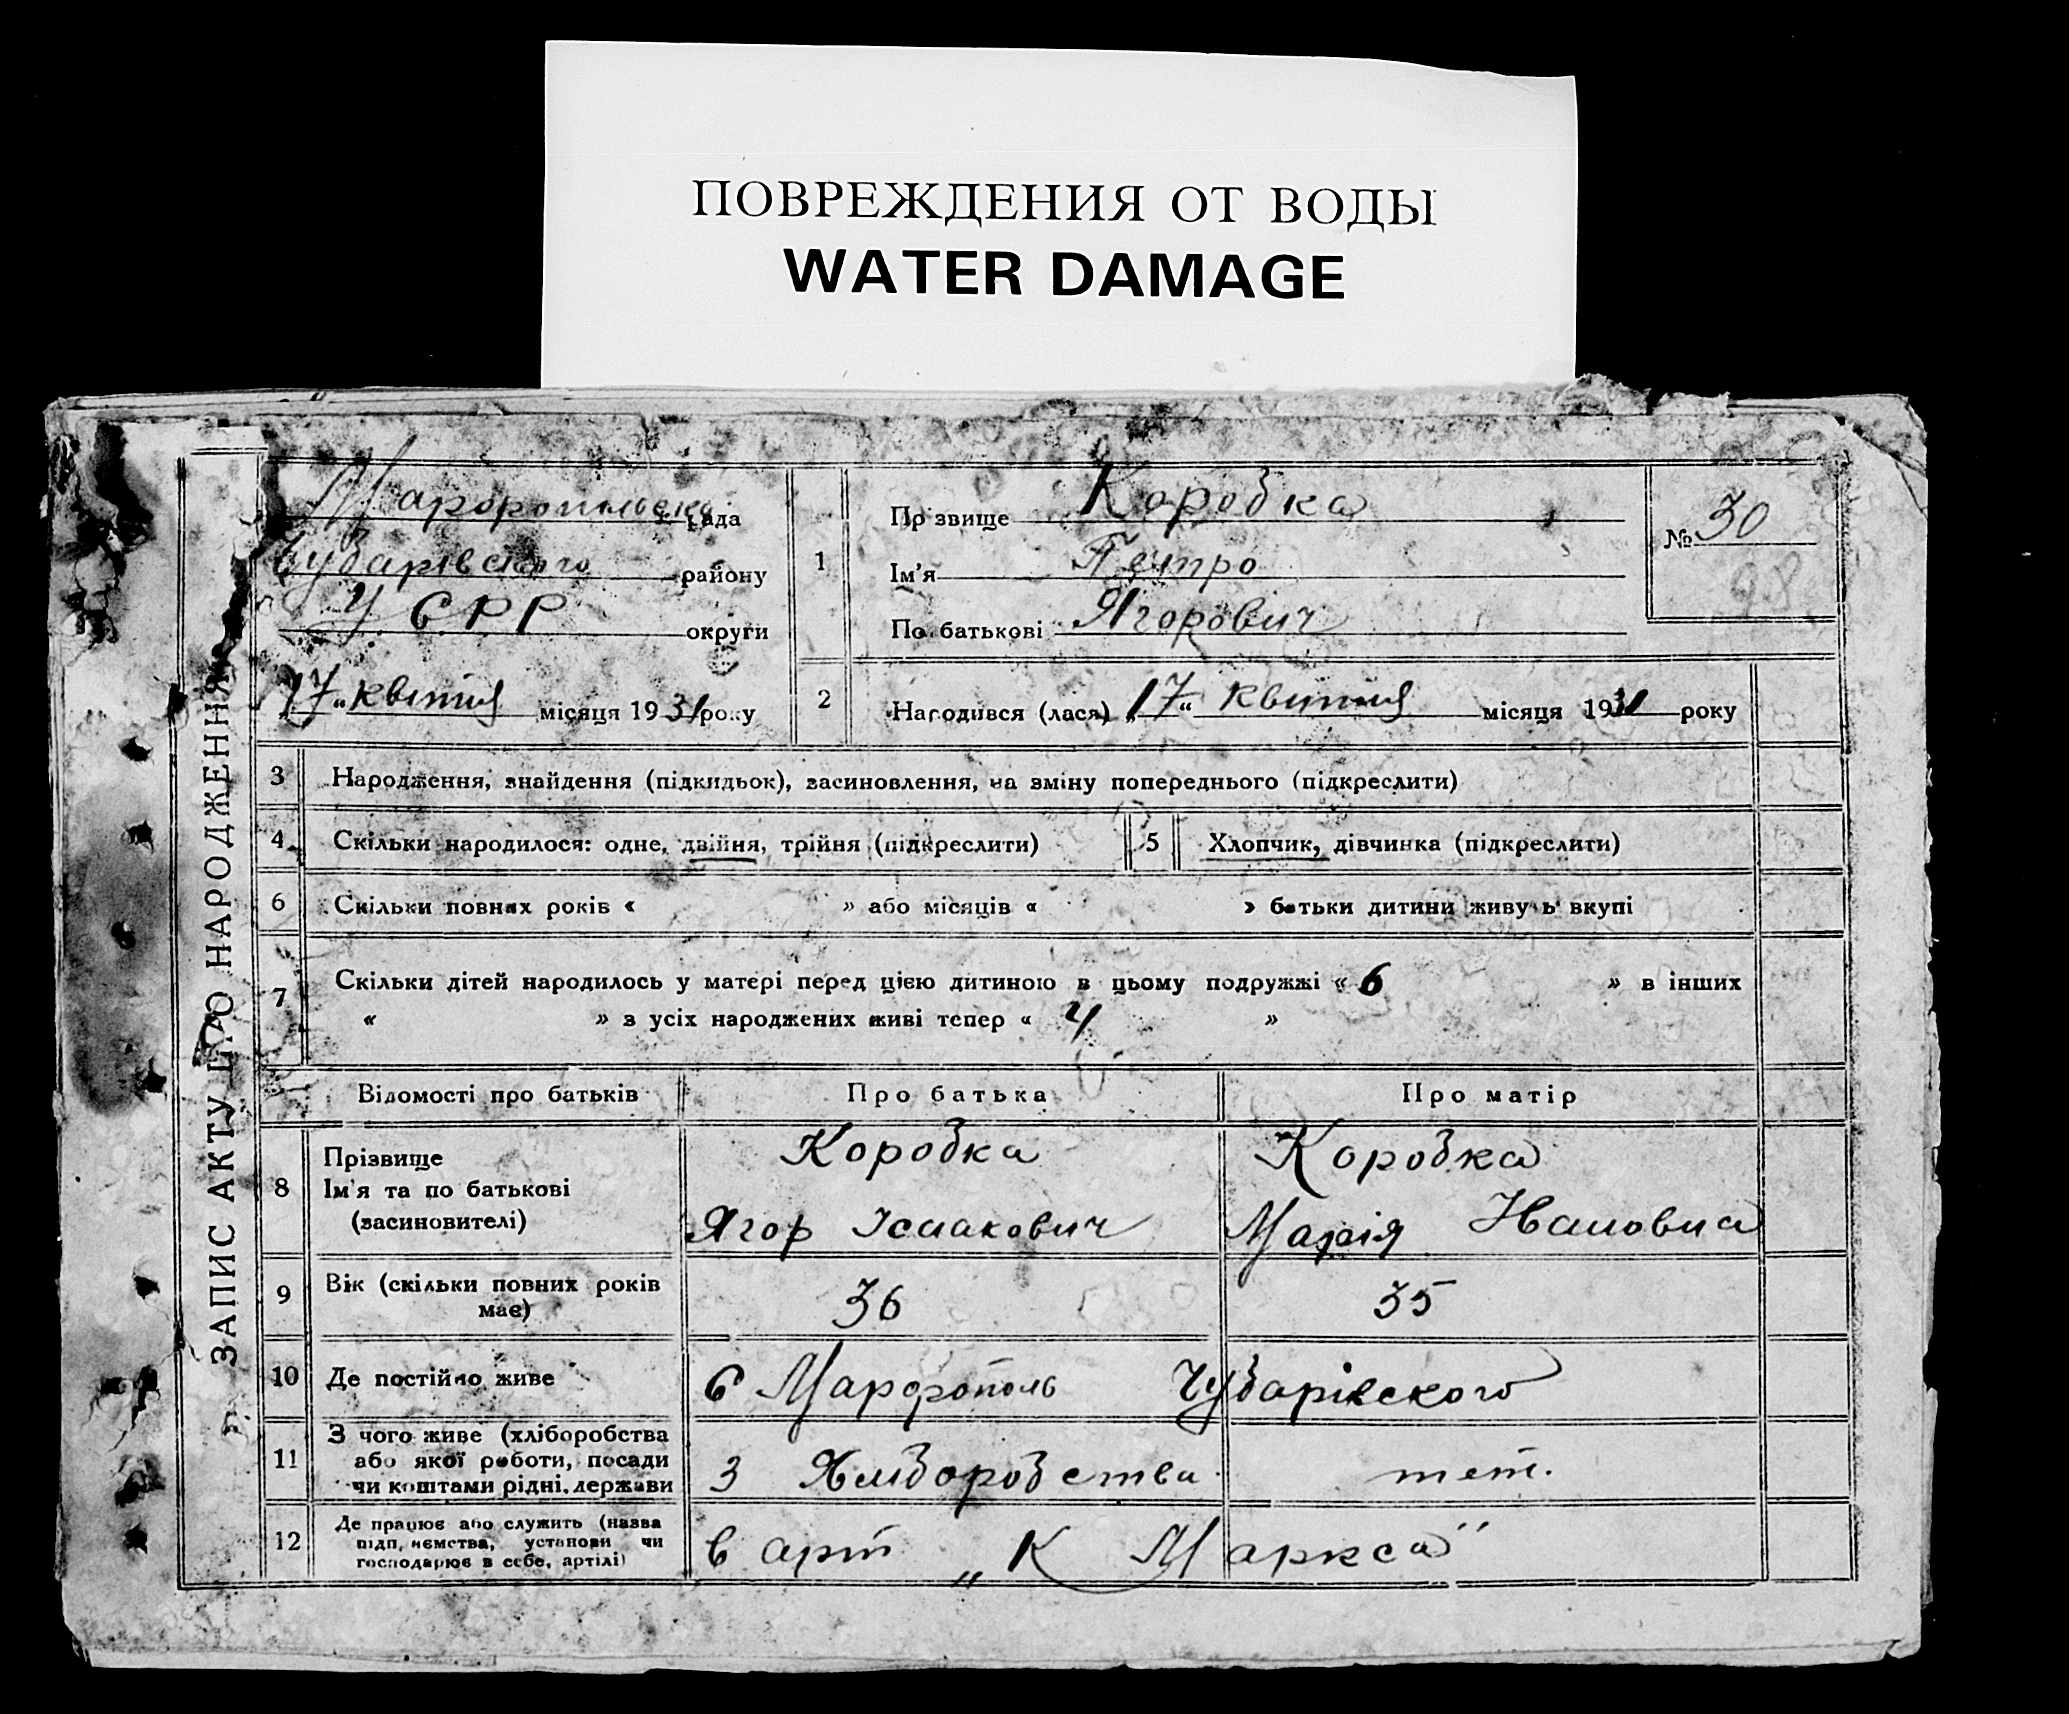 ПОВРЕЖДЕНИЯ ОТ ВОДЫ
WATER DAMAGE
ЗАПИС АКТУ ПРО НАРОДЖЕННЯ
Марфопільська рада
Чубарівського району
УСРР округи
„17“ квітня місяця 1931 року
1
Прізвище Коробка
Ім'я Петро
По батькові Ягорович
№ 30
98
2
Народився (лася) „17“ квітня місяця 1931 року
3 Народження, знайдення (підкидьок), засиновлення, на зміну попереднього (підкреслити)
4 Скільки народилося: одне, двійня, трійня (підкреслити)
5 Хлопчик, дівчинка (підкреслити)
6 Скільки повних років « » або місяців « » батьки дитини живуть вкупі
7 Скільки дітей народилось у матері перед цією дитиною в цьому подружжі « 6 » в інших
« » з усіх народжених живі тепер « 4 »
Відомості про батьків Про батька Про матір
8 Прізвище Коробка Коробка
Ім'я та по батькові
(засиновителі) Ягор Ісаакович Марія Ивановна
9 Вік (скільки повних років
має) 36 35
10 Де постійно живе с Марфополь Чубарівского
11 З чого живе (хліборобства
або якої роботи, посади
чи коштами рідні, держави з Хліборобства теж.
12 Де працює або служить (назва
підприємства, установи чи
господарює в себе, артілі) в арт „К Маркса"